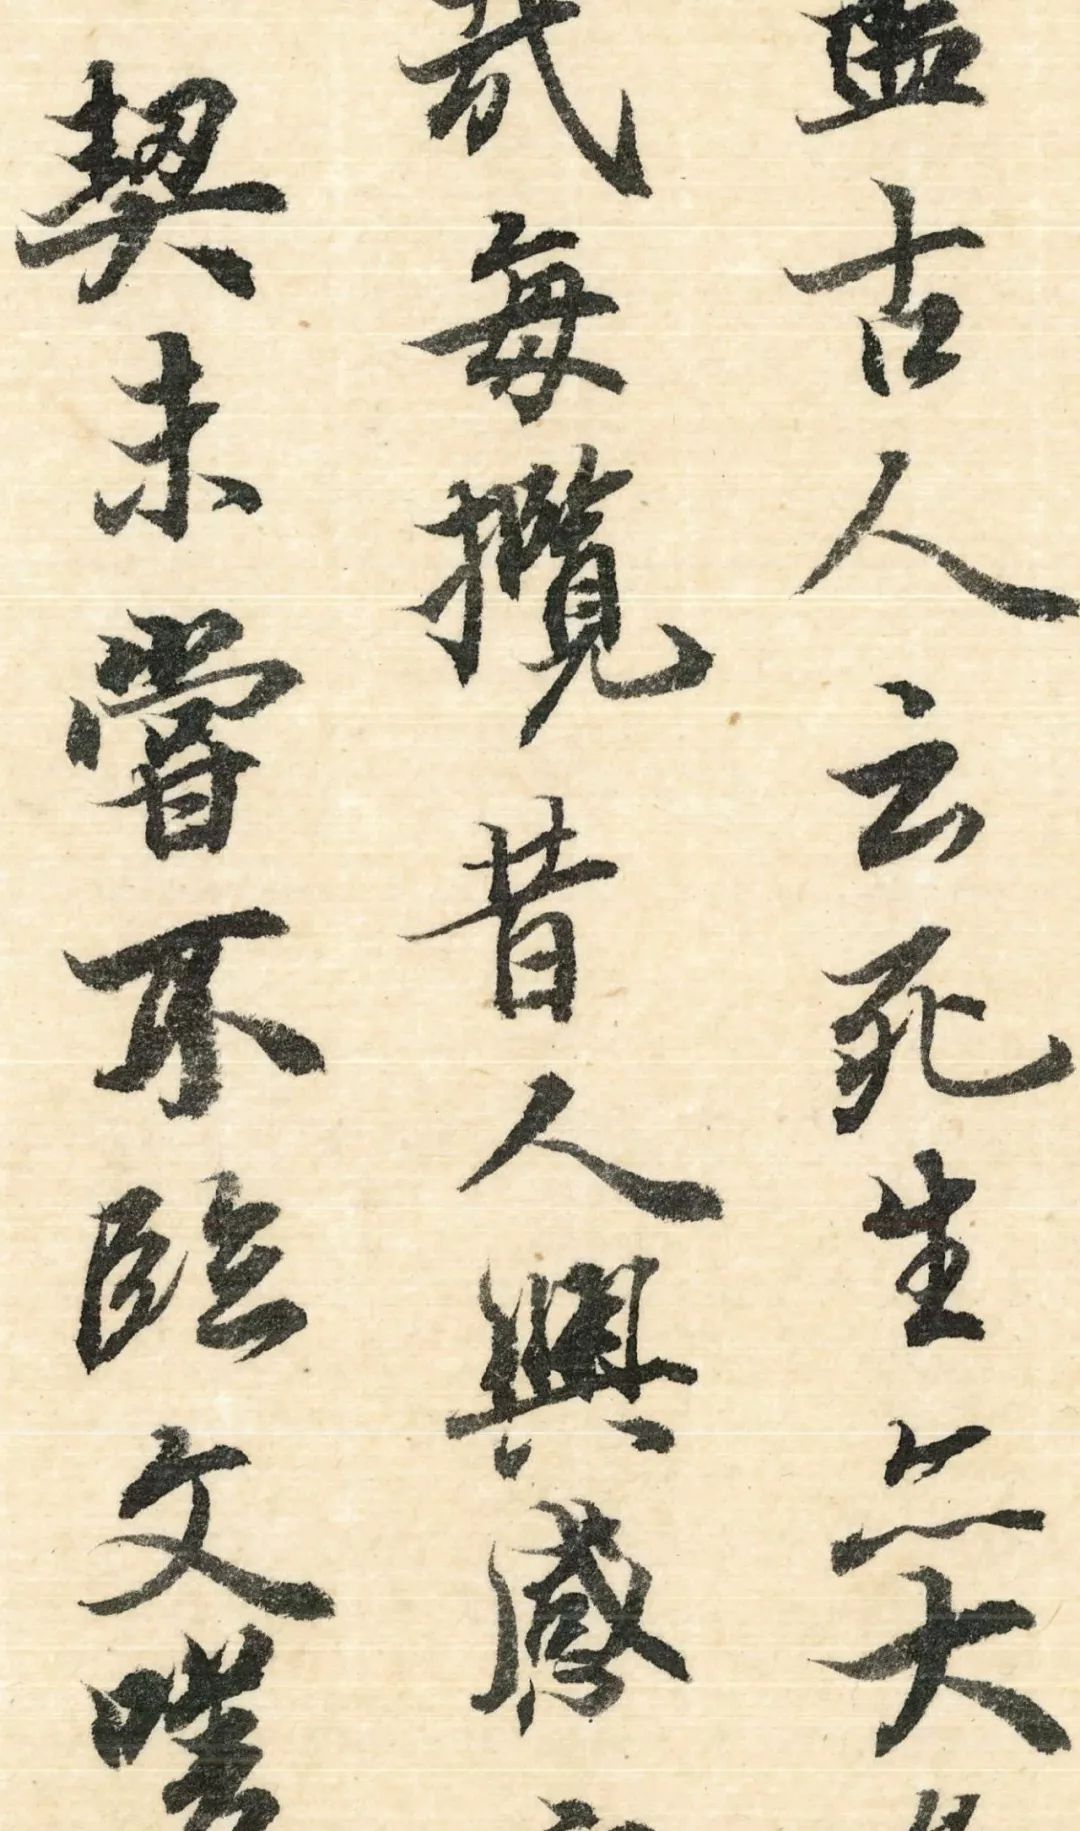 盡古人云死生亦大
哉每攬昔人興感
契未嘗不臨文嗟